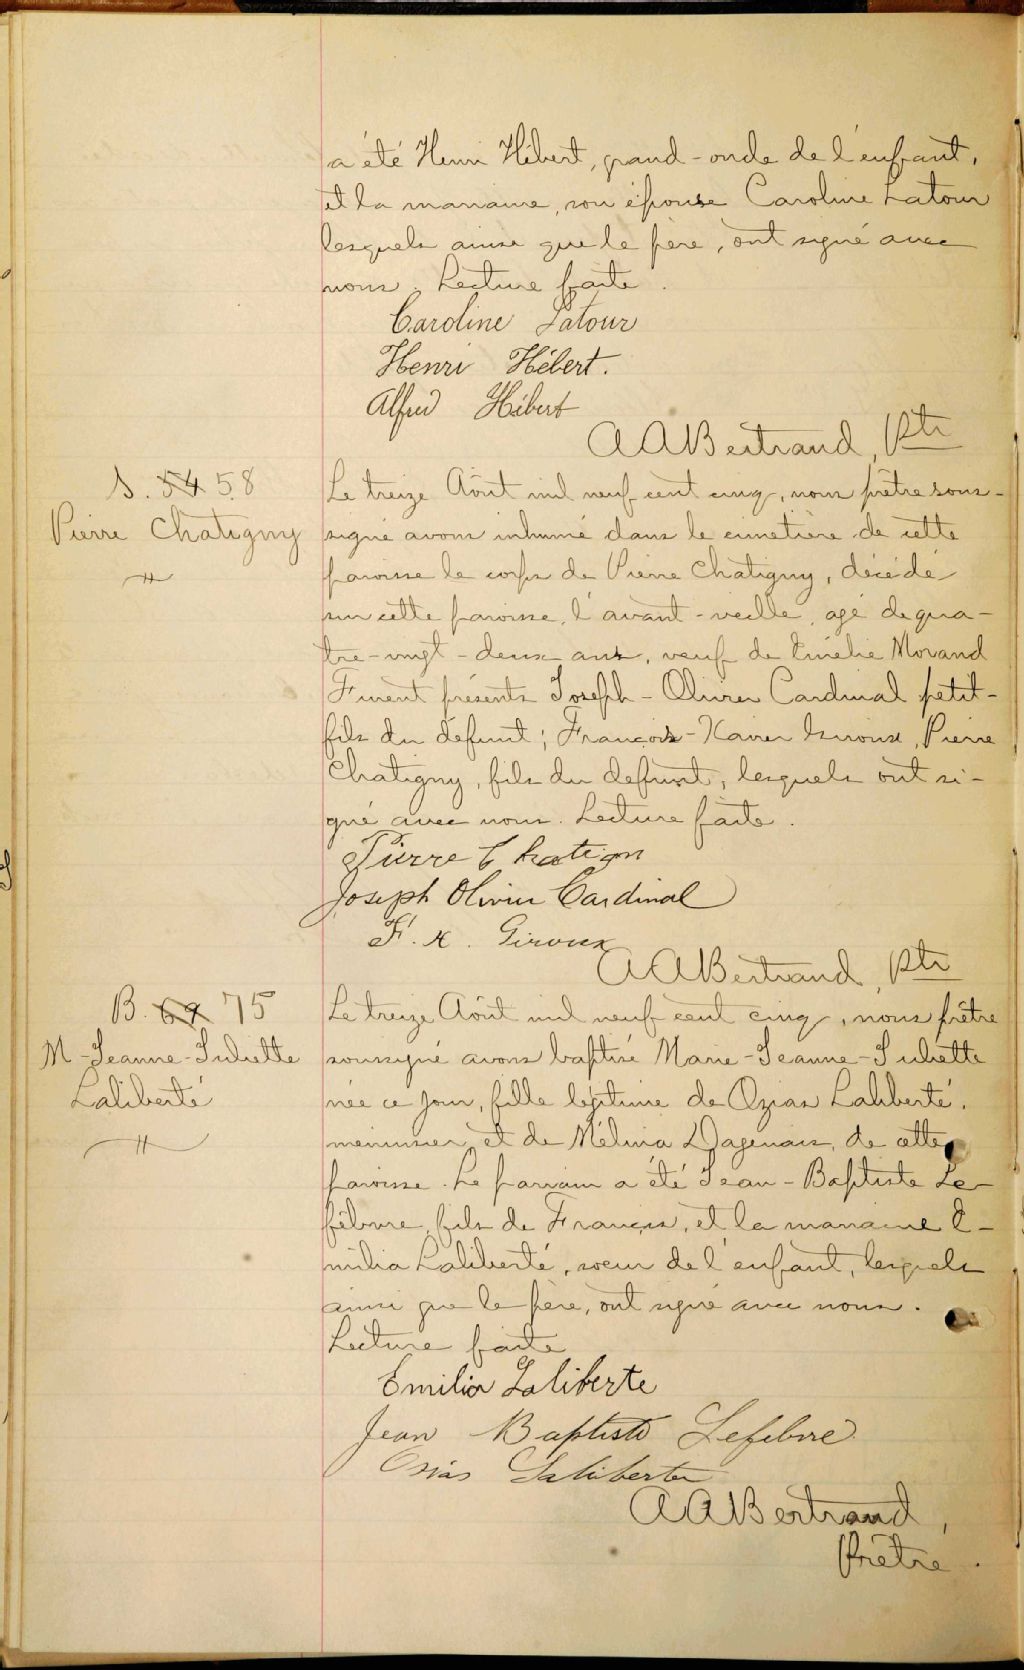 a été Henri Hébert, grand-oncle de l'enfant,
et la marraine, son épouse Caroline Latour
lesquels ainsi que le père, ont signé avec
nous. Lecture faite.
Caroline Latour
Henri Hébert.
Alfred Hébert
AABertrand, Ptr
S. 54 58
Pierre Chatigny
Le treize Août mil neuf cent cinq, nous prêtre sous-
signé avons inhumé dans le cimetière de cette
paroisse le corps de Pierre Chatigny, décédé
sur cette paroisse, l'avant-veille, agé de qua-
tre-vingt-deux ans, veuf de Emélie Morand
Furent présents Joseph-Olivier Cardinal petit-
fils du défunt; François-Xavier Giroux, Pierre
Chatigny, fils du defunt, lesquels ont si-
gné avec nous. Lecture faite.
Pierre Chatign
Joseph Olivier Cardinal
F. X. Giroux
AABertrand, Ptr
B. 69 75
M-Jeanne-Juliette
Laliberté
Le treize Août mil neuf cent cinq, nous prêtre
soussigné avons baptisé Marie-Jeanne-Juliette
née ce jour, fille légitime de Ozias Laliberté,
menuisier, et de Mélina Dagenais, de cette
paroisse. Le parrain a été Jean-Baptiste Le-
fèbvre, fils de François, et la marraine E-
milia Laliberté, soeur de l'enfant, lesquels
ainsi que le père, ont signé avec nous.
Lecture faite
Emilia Laliberte
Jean Baptiste Lefebvre
Osias Laliberte
AABertrand,
Prêtre.